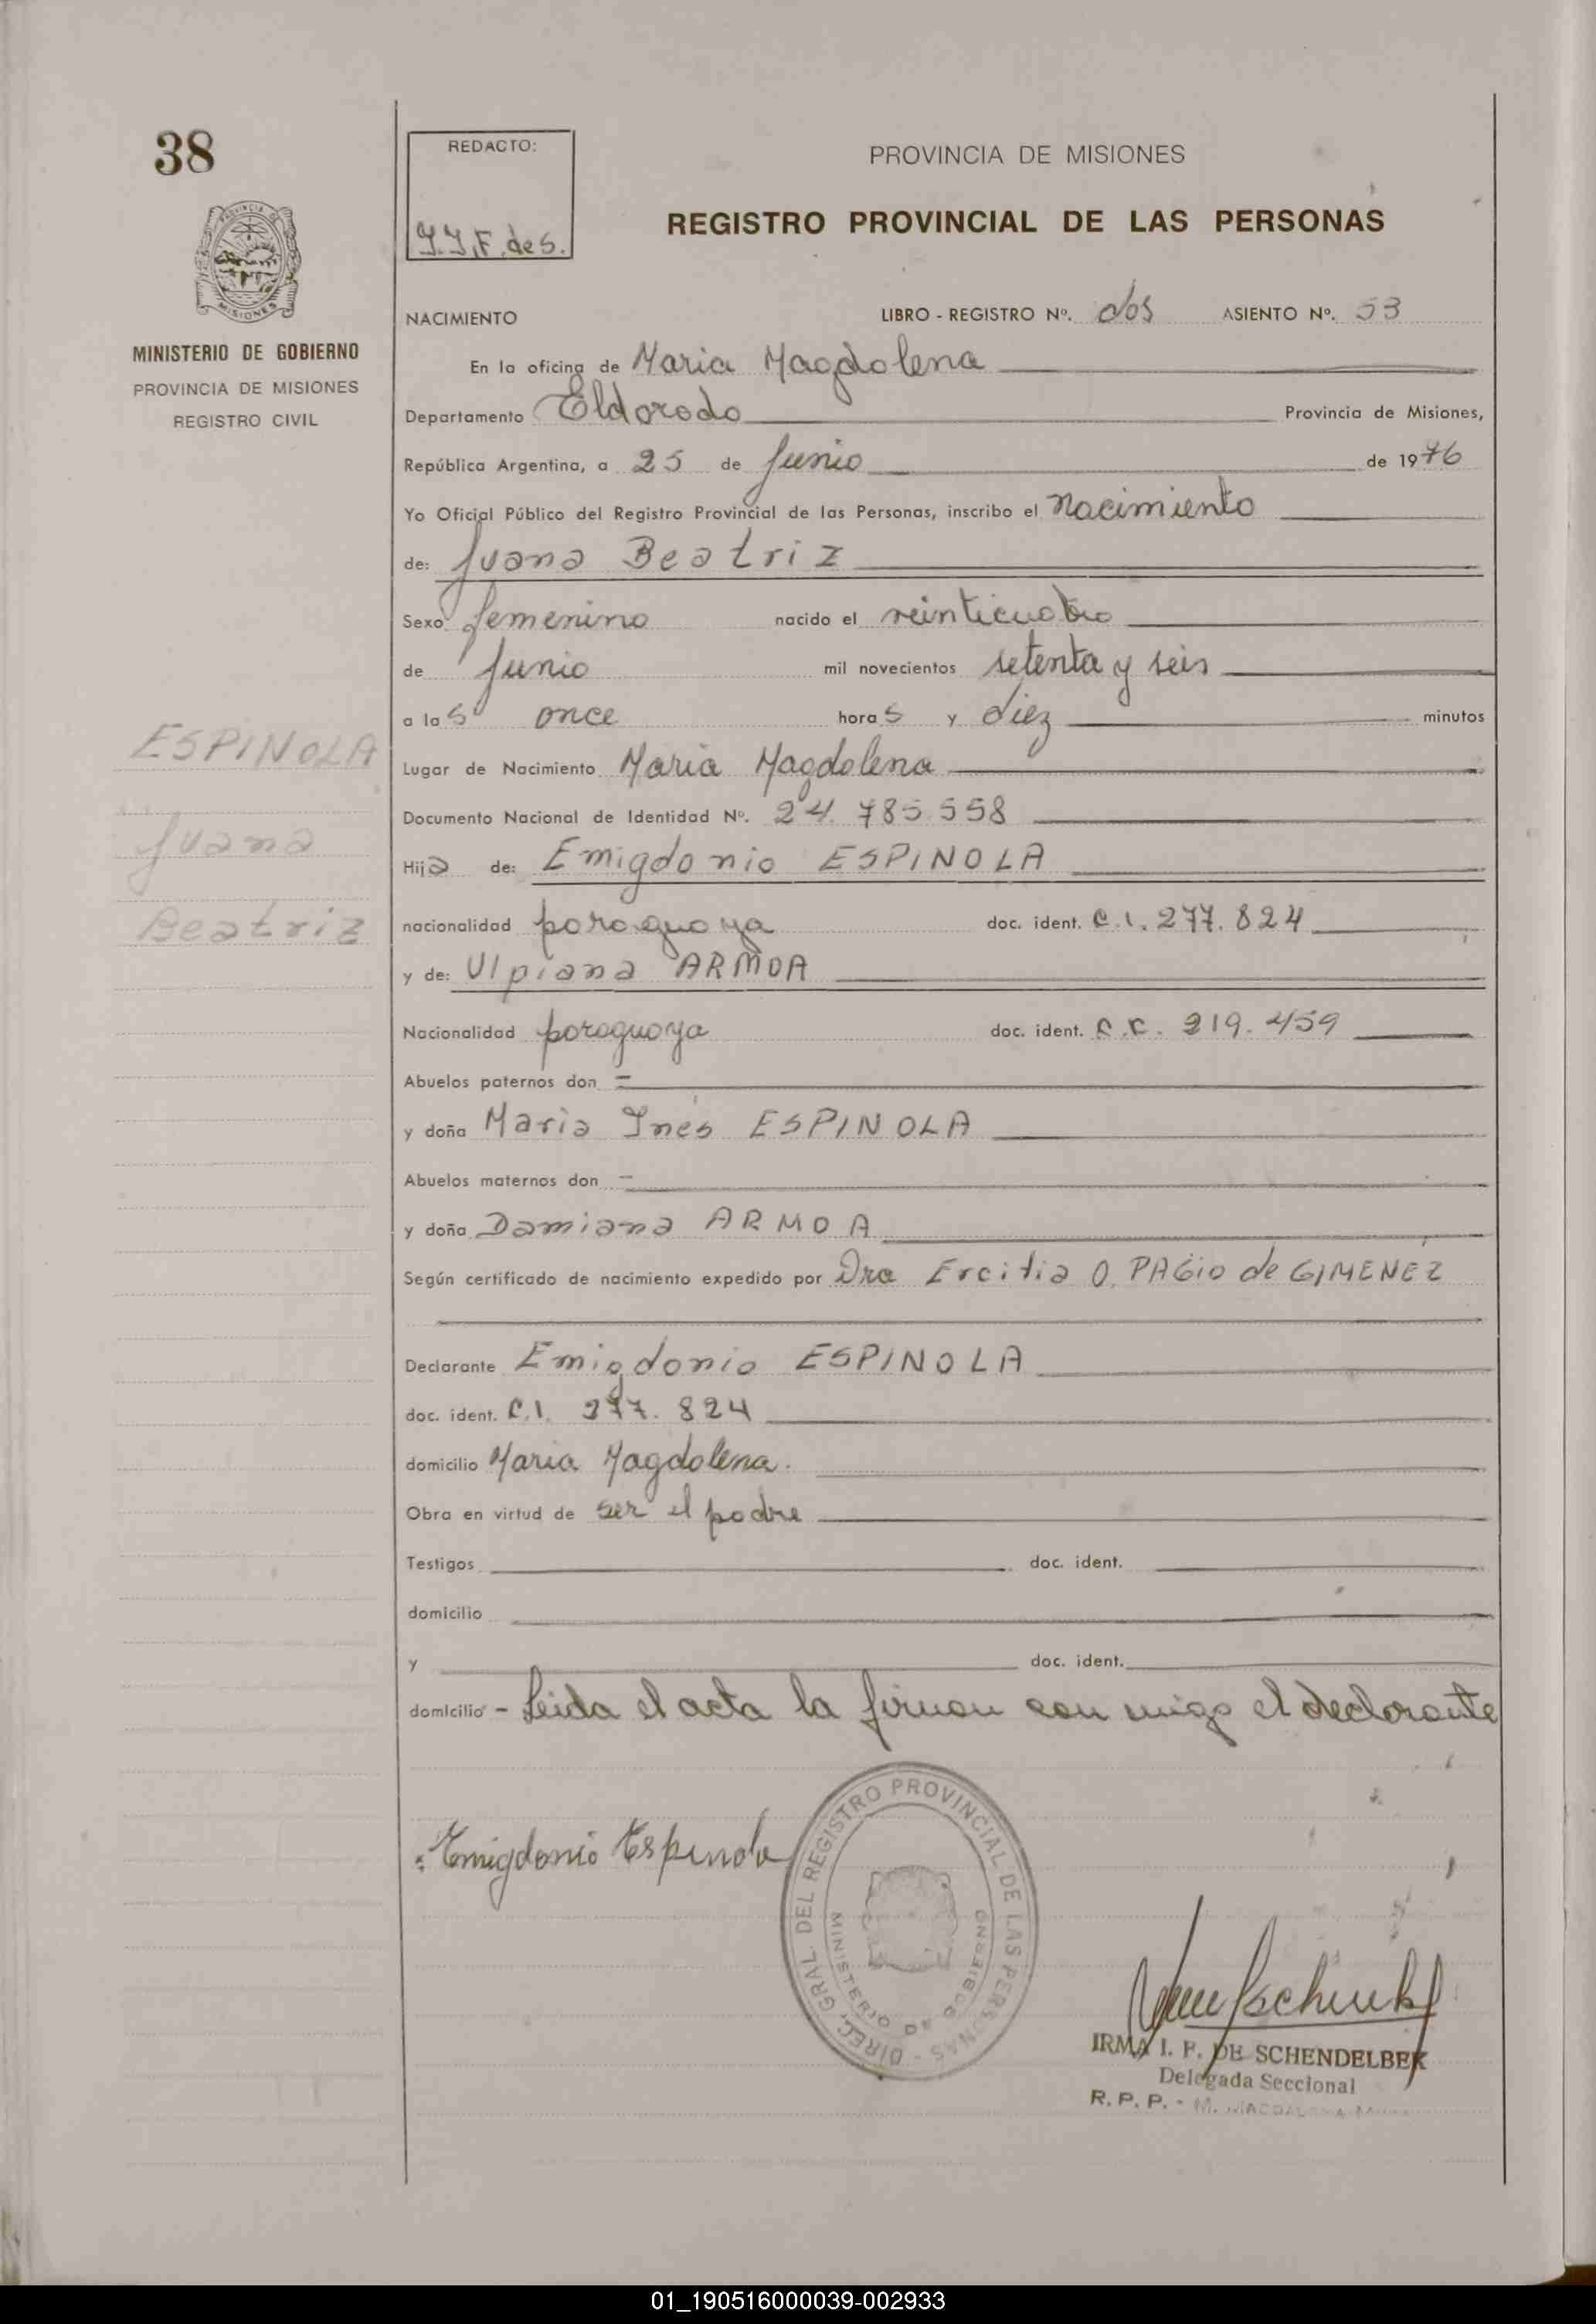 38
PROVINCIA DE MISIONES
MINISTERIO DE GOBIERNO
PROVINCIA DE MISIONES
REGISTRO CIVIL
ESPINOLA
Juana
Beatriz
REDACTO:
F. de S.
PROVINCIA DE MISIONES
REGISTRO PROVINCIAL DE LAS PERSONAS
NACIMIENTO LIBRO - REGISTRO Nº. dos ASIENTO Nº. 53
En la oficina de Maria Magdalena
Departamento Eldorado Provincia de Misiones,
República Argentina, a 25 de Junio de 1976
Yo Oficial Público del Registro Provincial de las Personas, inscribo el nacimiento
de: Juana Beatriz
Sexo femenino nacido el veinticuatro
de Junio mil novecientos setenta y seis
a las once horas y diez minutos
Lugar de Nacimiento Maria Magdalena
Documento Nacional de Identidad Nº. 24.785.558
Hija de: Emigdonio ESPINOLA
nacionalidad paraguaya doc. ident. C.I. 277.824
y de: Ulpiana ARMOA
Nacionalidad paraguaya doc. ident. 219.459
Abuelos paternos don =
y doña Maria Ines ESPINOLA
Abuelos maternos don =
y doña Damiana ARMOA
Según certificado de nacimiento expedido por Dra Ercitia O. PAGIO de GIMENEZ
Declarante Emigdonio ESPINOLA
doc. ident. C.I. 277.824
domicilio Maria Magdalena.
Obra en virtud de ser el padre
Testigos doc. ident.
domicilio
y doc. ident.
domicilio - Leida el acta la firman con migo el declarante
Emigdonio Espinola
DIREC. GRAL. DEL REGISTRO PROVINCIAL DE LAS PERSONAS -
MINISTERIO DE GOBIERNO
IRMA I. F. DE SCHENDELBEK
Delegada Seccional
R. P. P. - M. MAGDALENA
01_190516000039-002933